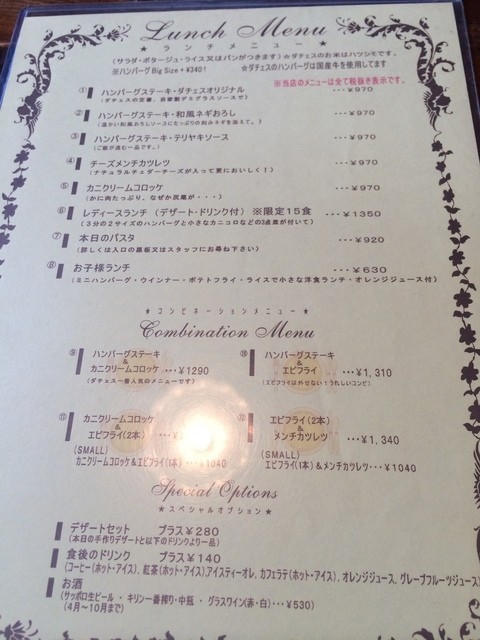 Lunch Menu
★ランチメニュー★
(サラダ・ポタージュ・ライス又はパンがつきます)☆ダチェスのお米はハツシモです。
※ハンバーグBig Size+¥340! ☆ダチェスのハンバーグは国産牛を使用してます
※当店のメニューは全て税抜き表示です。
① ハンバーグステーキ・ダチェスオリジナル ・・・¥970
(ダチェスの定番、自家製デミグラスソースで)
② ハンバーグステーキ・和風ネギおろし ・・・¥970
(温かい和風おろしソースにたっぷりの刻みネギを添えて。)
③ ハンバーグステーキ・テリヤキソース ・・・¥970
(ご飯が進む一品です。)
④ チーズメンチカツレツ ・・・¥970
(ナチュラルチェダーチーズが入って更においしく!)
⑤ カニクリームコロッケ ・・・¥970
(かに肉たっぷり、なぜか尻尾が・・・)
⑥ レディースランチ (デザート・ドリンク付) ※限定15食 ・・・¥1350
(3分の2サイズのハンバーグと小さなカニコロなどの3点盛が付いて)
⑦ 本日のパスタ ・・・¥920
(詳しくは入口の黒板又はスタッフにお尋ね下さい)
⑧ お子様ランチ ・・・¥630
(ミニハンバーグ・ウインナー・ポテトフライ・ライスで小さな洋食ランチ・オレンジジュース付)
★コンビネーションメニュー★
Combination Menu
⑨ ハンバーグステーキ
&
カニクリームコロッケ ・・・¥1290
(ダチェス一番人気のメニューです)
⑩ ハンバーグステーキ
&
エビフライ ・・・¥1,310
(エビフライは外せない!うれしいコンビ)
⑪ カニクリームコロッケ
&
エビフライ(2本) ・・・¥
(SMALL)
カニクリームコロッケ&エビフライ(1本) ・・・¥1040
⑫ エビフライ(2本)
&
メンチカツレツ ・・・¥1,340
(SMALL)
エビフライ(1本)&メンチカツレツ・・・¥1040
Special Options
★スペシャルオプション★
デザートセット プラス¥280
(本日の手作りデザートと以下のドリンクより一品)
食後のドリンク プラス¥140
(コーヒー(ホット・アイス), 紅茶(ホット・アイス),アイスティーオレ, カフェラテ(ホット・アイス), オレンジジュース, グレープフルーツジュース)
お酒
(サッポロ生ビール ・ キリン一番搾り・中瓶 ・ グラスワイン(赤・白)・・・¥530)
(4月~10月まで)